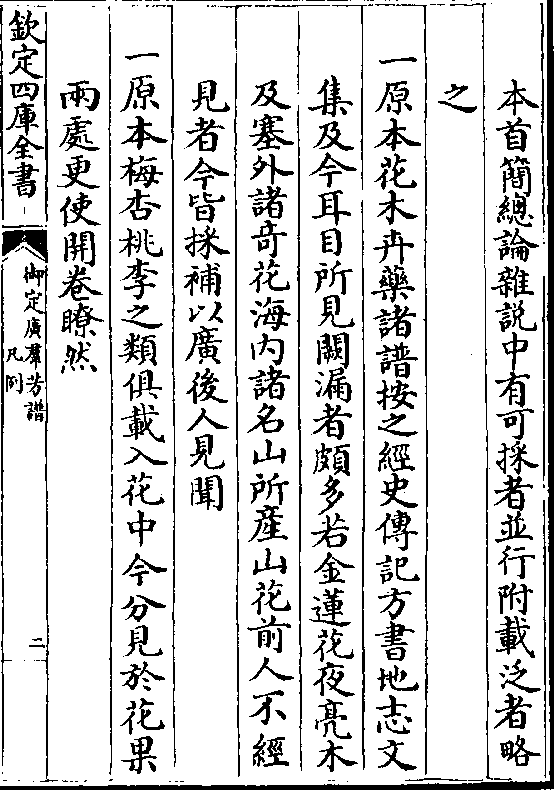 本首簡總論雜說中有可採者並行附載泛者略
之
一原本花木卉藥諸譜按之經史傳記方書地志文
集及今耳目所見闕漏者頗多若金蓮花夜亮木
及塞外諸竒花海内諸名山所產山花前人不經
見者今皆採補以廣後人見聞
一原本梅杏桃李之類俱載入花中今分見於花果
兩處更使開卷瞭然
欽定四庫全書
御定廣羣芳譜
凡例
二